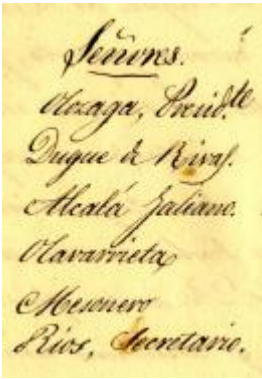 Señores.
Olozaga, Presid.te
Duque de Rivas.
Alcalá Galiano.
Olavarrieta
Mesonero
Rios, Secretario.